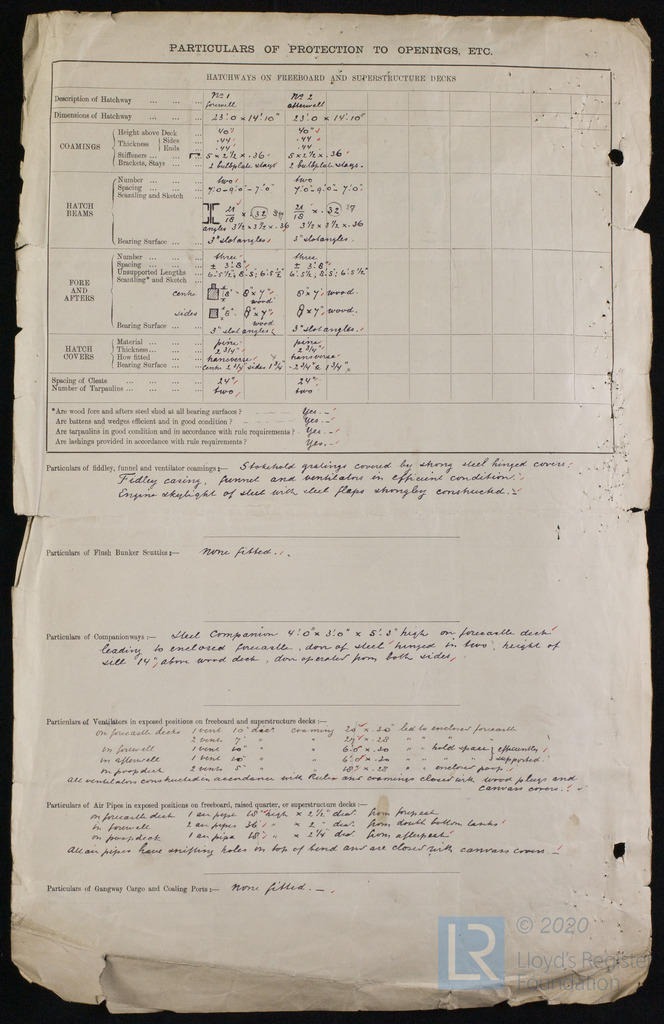 PARTICULARS OF PROTECTION TO OPENINGS, ETC.
HATCHWAYS ON FREEBOARD AND SUPERSTRUCTURE DECKS
Description of Hatchway ... ... ... No 1 forewell No 2 afterwell
Dimensions of Hatchway ... ... ... 23'.0 x 14'.10" 23'.0 x 14'.10"
COAMINGS
Height above Deck ... 40" 40"
Thickness Sides ... .44 .44
Ends ... .44 .44
Stiffeners ... 5 x 2½ x .36 5 x 2½ x .36
Brackets, Stays ... 2 bulbplate stays 2 bulbplate stays.
HATCH BEAMS
Number ... two two
Spacing ... 7'.0 - 9'.0 - 7'.0 7'.0 - 9'.0 - 7'.0"
Scantling and Sketch
21/18 x .32 37 21/18 x .32 37
angles 3½ x 3½ x .36 3½ x 3½ x .36
Bearing Surface ... 3" slot angles 3" slot angles.
FORE AND AFTERS
Number ... three three
Spacing ... ± 3'.8" ± 3'.8"
Unsupported Lengths 6'.5½", 8.5; 6'.5½" 6'.5½; 8.5; 6'.5½"
Scantling* and Sketch
centre 8" - 8" x 7" wood 8" x 7" wood.
sides 8" - 8" x 7" wood 8" x 7" wood.
Bearing Surface ... 3" slot angles 3" slot angles.
HATCH COVERS
Material ... pine pine
Thickness ... 2¾" 2¾"
How fitted ... transverse transverse
Bearing Surface ... centre 2¾ sides 1¾" 2¾" & 1¾"
Spacing of Cleats ... ... ... 24" 24"
Number of Tarpaulins ... ... ... two two
*Are wood fore and afters steel shod at all bearing surfaces? Yes.
Are battens and wedges efficient and in good condition? Yes.
Are tarpaulins in good condition and in accordance with rule requirements? Yes.
Are lashings provided in accordance with rule requirements? Yes.
Particulars of fiddley, funnel and ventilator coamings:— Stokehold gratings covered by strong steel hinged covers;
Fidley casing, funnel and ventilators in efficient condition.
Engine skylight of steel with steel flaps strongley constructed.
Particulars of Flush Bunker Scuttles:— None fitted.
Particulars of Companionways:— Steel Companion 4'.0" x 3'.0" x 5'.3" high on forecastle deck
leading to enclosed forecastle, door of steel hinged in two, height of
sill 14" above wood deck, door operated from both sides.
Particulars of Ventilators in exposed positions on freeboard and superstructure decks:—
on forecastle decks 1 vent 10" dia. coaming 29" x .30" led to enclosed forecastle
2 vents 7" " " 29" x .28 " " "
in forewell 1 vent 20" " 6'.0 x .30 " " hold space efficiently
in afterwell 1 vent 20" " 6'.0 x .30 " " " supported.
on poop deck 2 vents 5" " " x .28 " " enclosed poop.
All ventilators constructed in accordance with Rules and coamings closed with wood plugs and
canvas covers.
Particulars of Air Pipes in exposed positions on freeboard, raised quarter, or superstructure decks:—
on forecastle deck 1 air pipe 18" high x 2½" dia. from forepeak
in forewell 2 air pipes 36" " x 2" dia. from double bottom tanks
on poop deck 1 air pipe 18" " x 2¼" dia. from afterpeak
All air pipes have sniffing holes on top of bend and are closed with canvas covers.
Particulars of Gangway Cargo and Coaling Ports:— None fitted.
LR © 2020
Lloyd's Register
Foundation